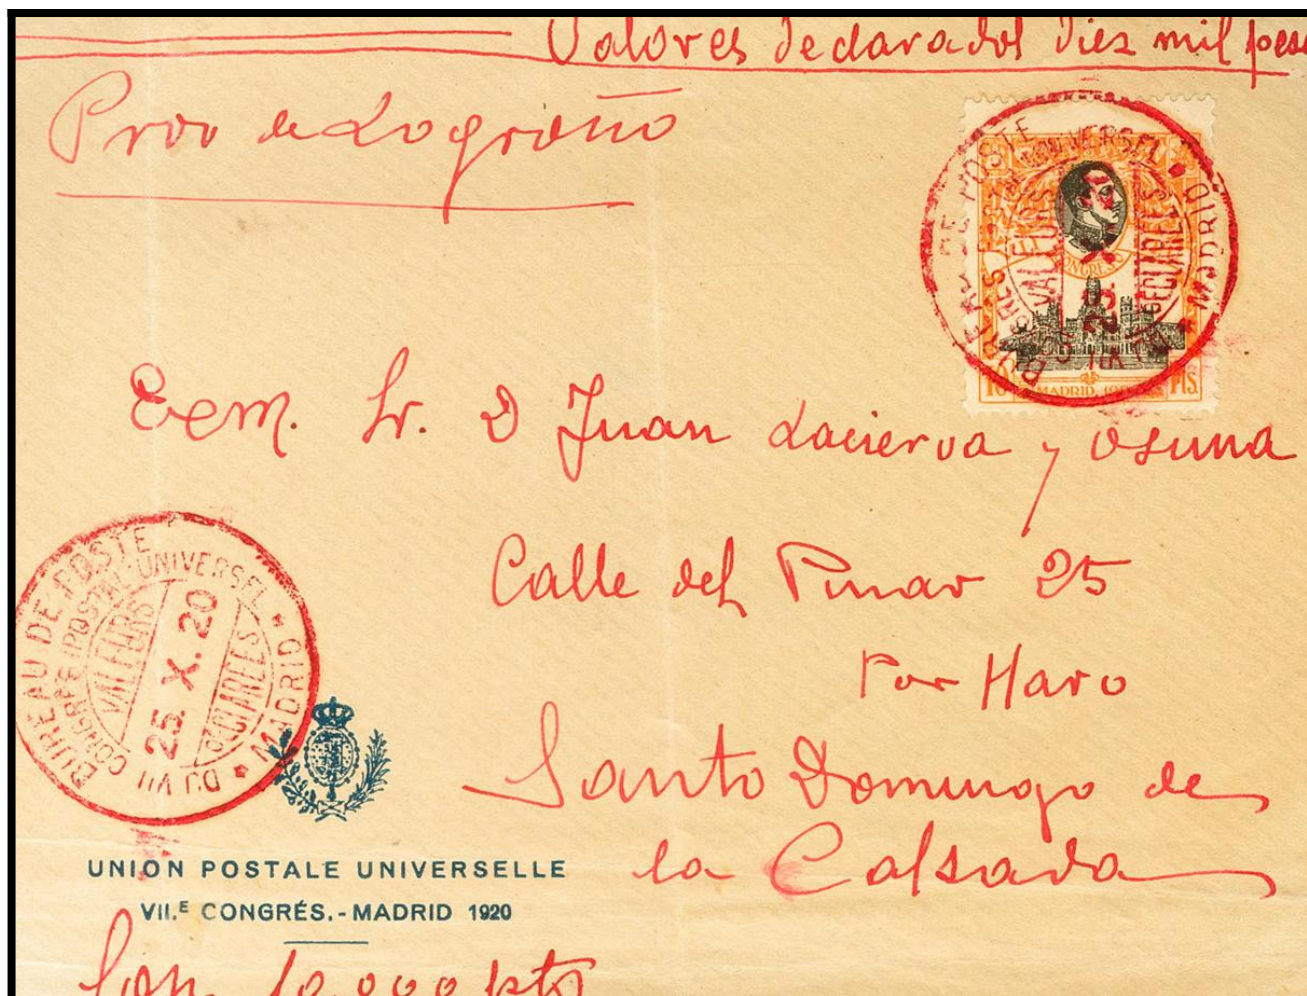 Valores declarados diez mil pese
Prov de Logroño
BUREAU DE POSTE
DU VII CONGRÈS POSTAL UNIVERSEL
VALEURS
DÉCLARÉES
MADRID
CONGRESO
MADRID
10 PTS.
Exm. Sr. D Juan Lacierva y Osuna
Calle del Pinar 25
Por Haro
Santo Domingo de
la Calsada
BUREAU DE POSTE
DU VII CONGRÈS POSTAL UNIVERSEL
VALEURS
25. X. 20
DÉCLARÉES
* MADRID *
UNION POSTALE UNIVERSELLE
VII.E CONGRÉS.-MADRID 1920
Son 10.000 pts